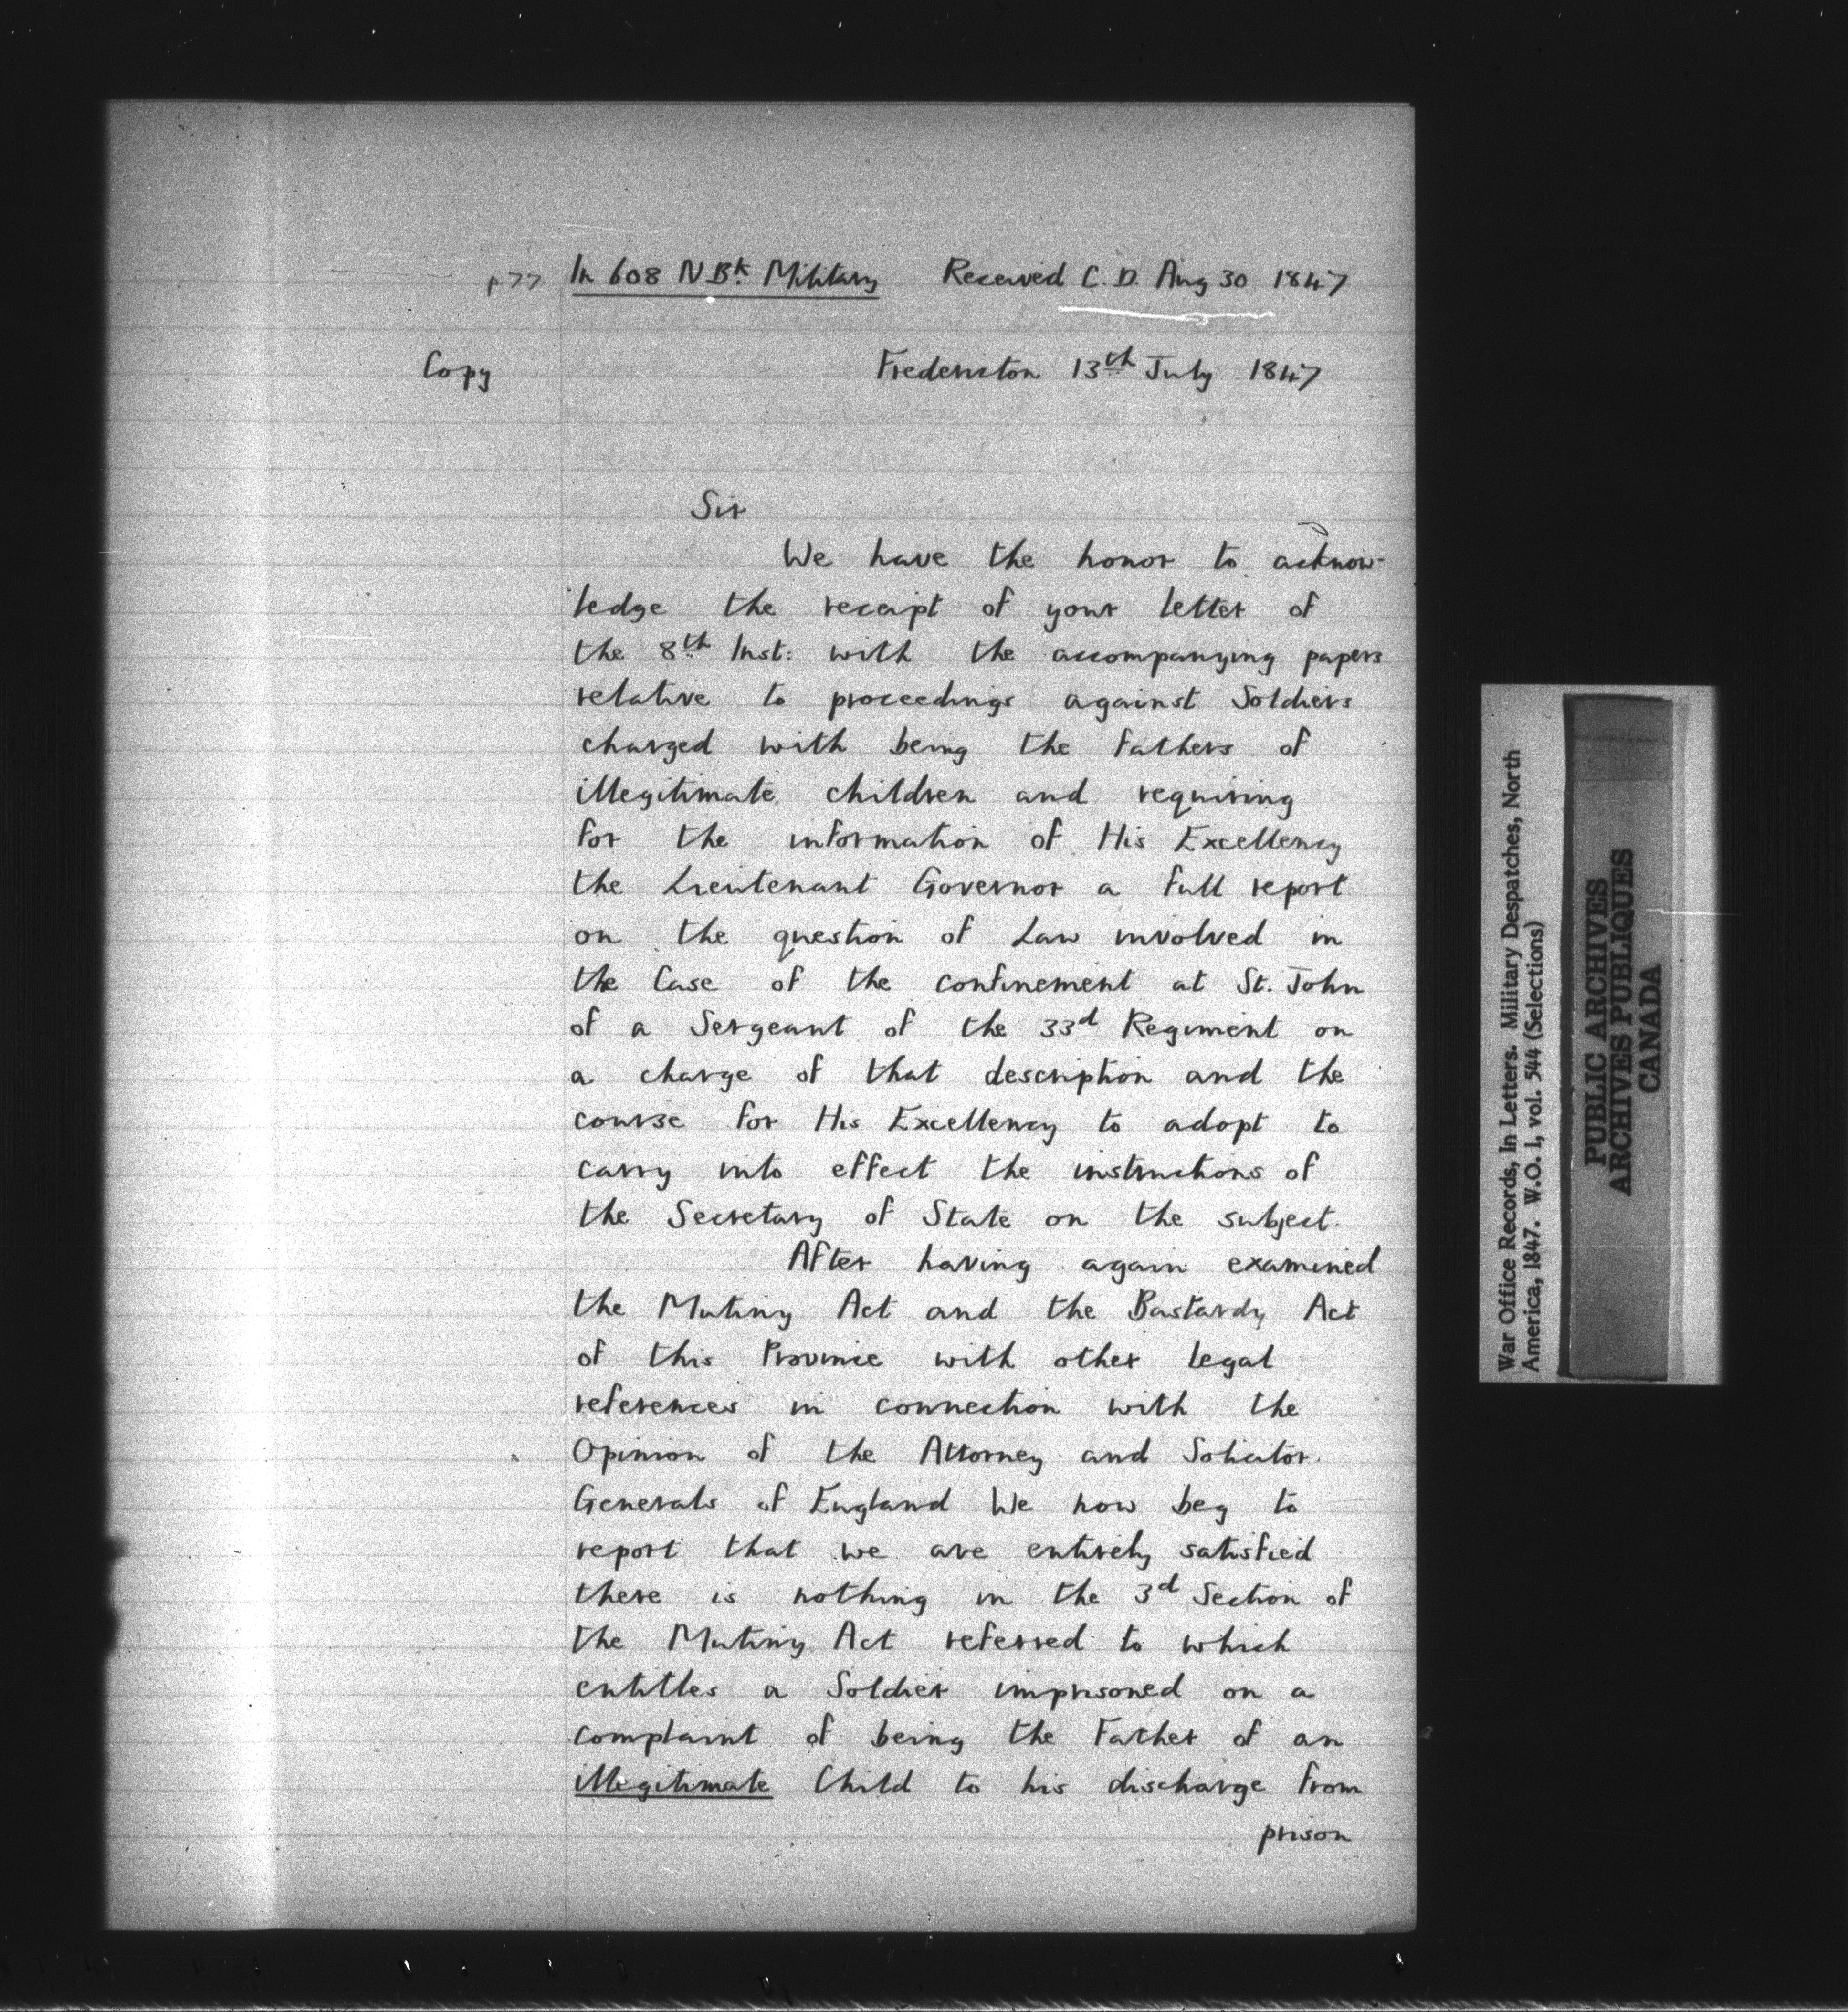 p77 In 608 N Bk. Military Received C. D. Aug 30 1847
Copy Fredericton 13th July 1847
Sir
We have the honor to acknow-
ledge the receipt of your letter of
the 8th Inst: with the accompanying papers
relative to proceedings against Soldiers
charged with being the fathers of
illegitimate children and requiring
for the information of His Excellency
the Lieutenant Governor a full report
on the question of Law involved in
the Case of the confinement at St. John
of a Sergeant of the 33d Regiment on
a charge of that description and the
course for His Excellency to adopt to
carry into effect the instructions of
the Secretary of State on the subject.
After having again examined
the Mutiny Act and the Bastardy Act
of this Province with other legal
references in connection with the
Opinion of the Attorney and Solicitor
Generals of England We now beg to
report that we are entirely satisfied
there is nothing in the 3d Section of
the Mutiny Act referred to which
entitles a Soldier imprisoned on a
complaint of being the Father of an
illegitimate Child to his discharge from
prison
War Office Records, In Letters. Military Despatches, North
America, 1847. W.O. 1, vol. 544 (Selections)
PUBLIC ARCHIVES
ARCHIVES PUBLIQUES
CANADA